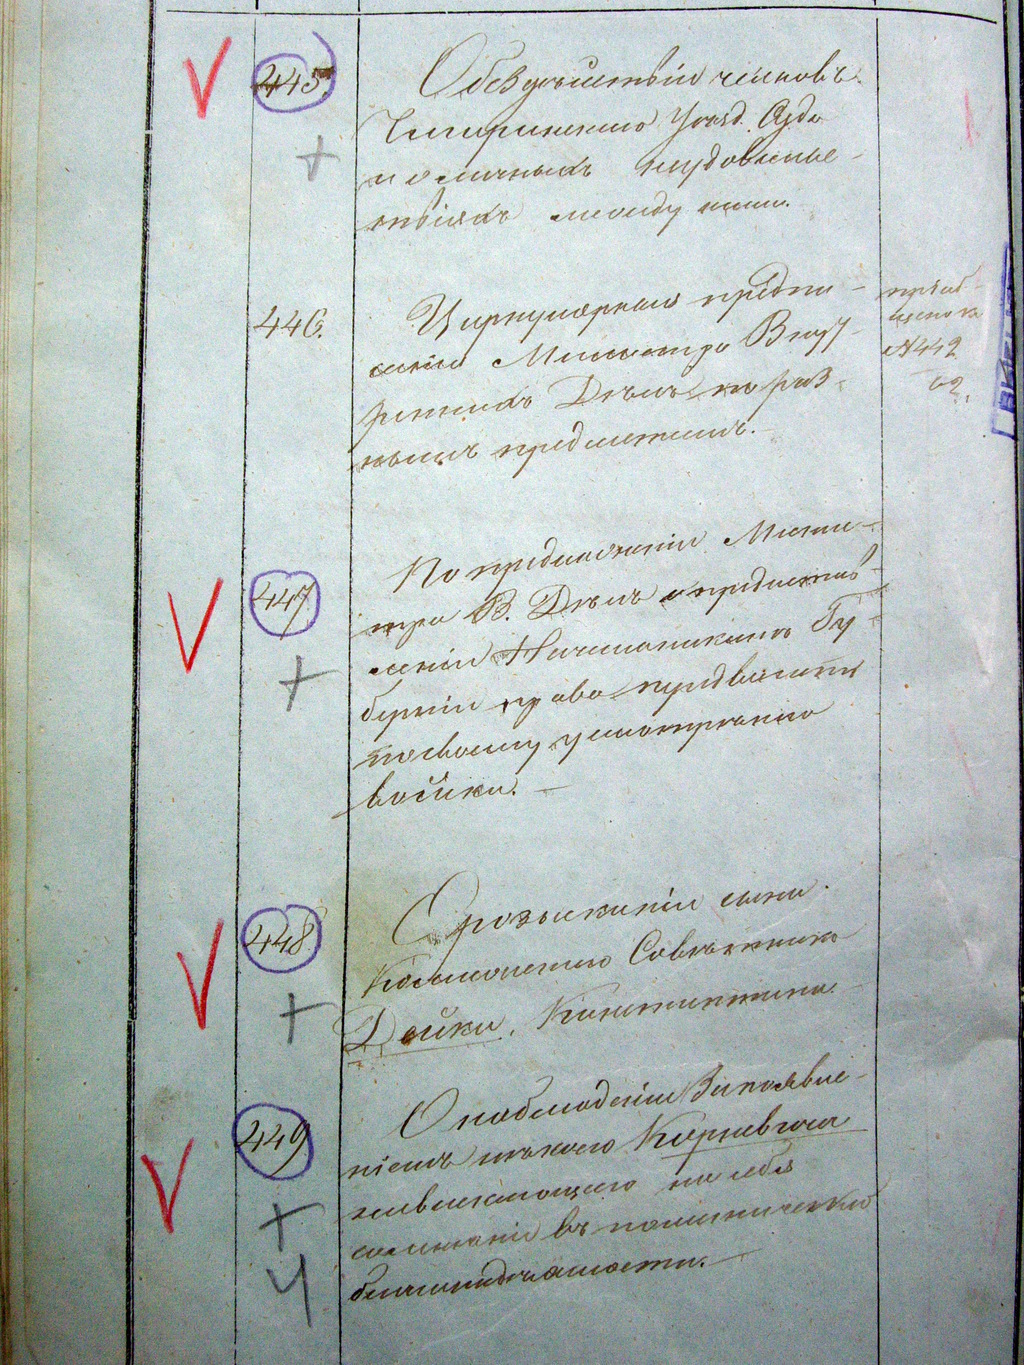 445.
О бездѣйствіи членовъ
Чигиринскаго Уѣзд. Суда
и личныхъ неудоволь-
ствіяхъ между ними.
446.
Циркулярныя предпи-
санія Министра Внут-
реннихъ Дѣлъ по раз-
нымъ предметамъ.
пріоб-
щено къ
№442
02.
447
По предложенію Минис-
тра В. Дѣлъ о предостав-
леніи Начальникамъ Гу-
берніи право передвигать
по своему усмотрѣнію
войска.
448
О розысканіи сына
Коллежскаго Совѣтника
Дейки, Константина.
449
О наблюденіи за появле-
ніемъ нѣкоего Карневича
навлекающаго на себя
сомнѣніе въ политической
благонадежности.